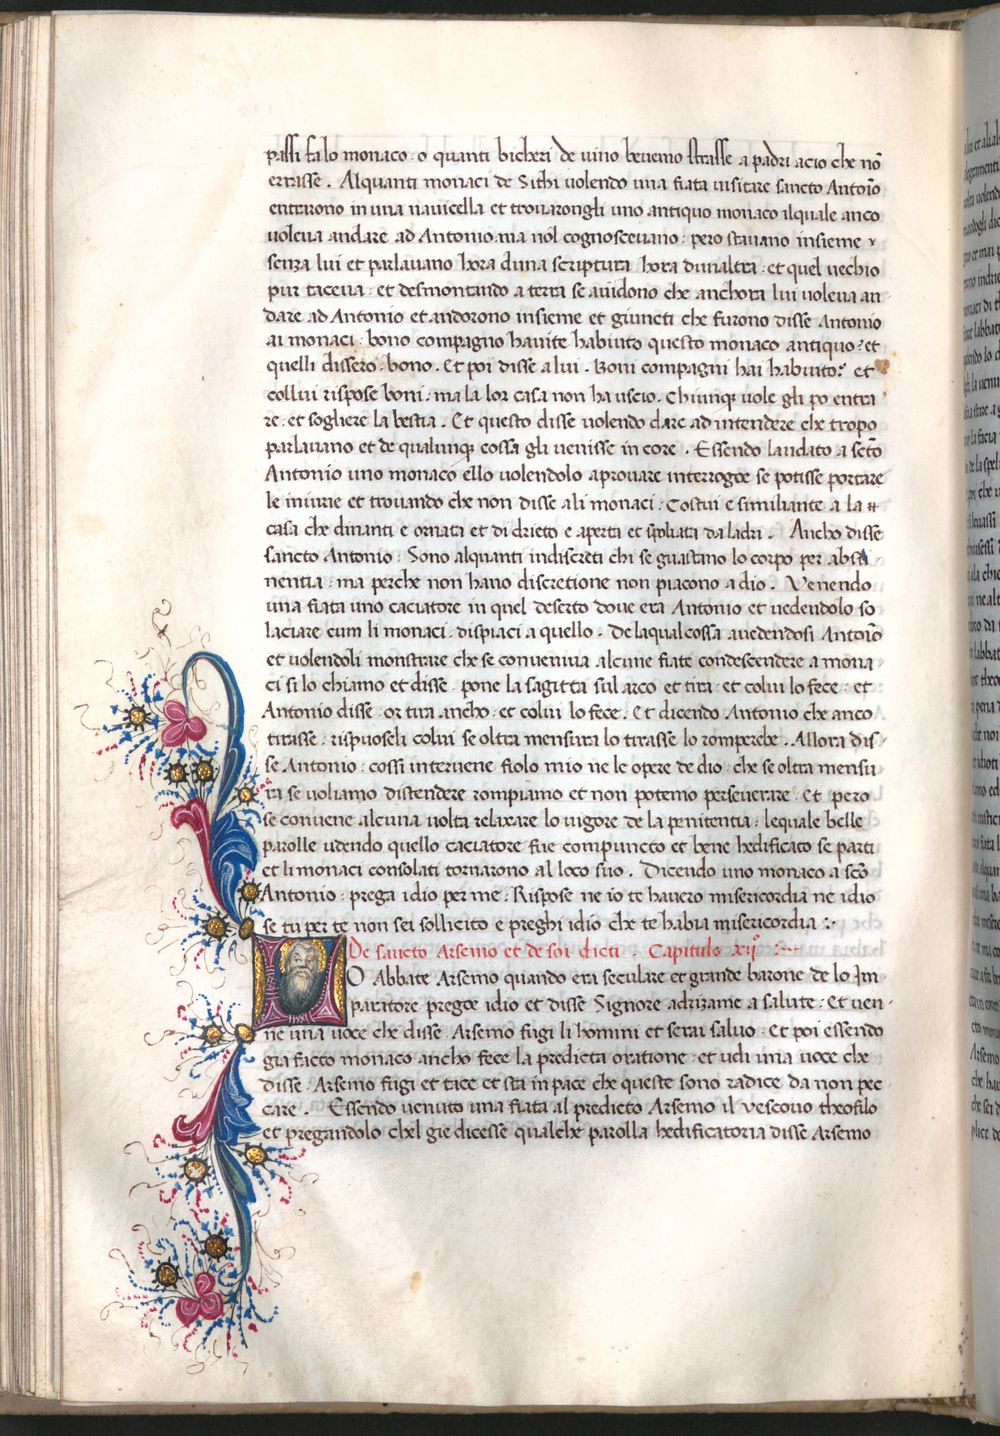 passi falo monaco · o quanti bicheri de uino beuemo strasse a padri acio che nõ
errasse . Alquanti monaci de Sithi uolendo una fiata uisitare sancto Antoñio
entrerono in una nauicella et trouarongli uno antiquo monaco ilquale anco
uoleua andare ad Antonio ma nol cognosceuano : pero stauano insieme
senza lui et parlauano hora duna scriptura hora dunaltra : et quel uechio
pur taceua : et desmontando a terra se auidono che anchora lui uoleua an
dare ad Antonio et andorono insieme et giuncti che furono disse Antonio
ai monaci : bono compagno hauite habiuto questo monaco antiquo ? et
quelli dissero : bono . Et poi disse a lui . Boni compagni hai habiuto ? et
collui rispose boni : ma la lor casa non ha uscio . Chiunq; uole gli po entra
re : et sogliere la bestia . Et questo disse uolendo dare ad intendere che tropo
parlauano et de qualunq; cossa gli uenisse in core . Essendo laudato a scto
Antonio uno monaco ello uolendolo aprouare interrogoe se potisse portare
le iniurie et trouando che non disse ali monaci : Costui e simihante a la
casa che dinanti e ornata et di drieto e aperta et spoliata da ladri . Ancho disse
sancto Antonio : Sono alquanti indiscreti chi se guastano lo corpo per absti
nentia : ma perche non hano discretione non piacono a dio . Venendo
una fiata uno caciatore in quel deserto doue era Antonio et uedendolo so
laciare cum li monaci . dispiaci a quello . De laqual cossa auedendosi Antoñio
et uolendoli monstrare che se conueniua alcune fiate condescendere a mona
ci si lo chiamo et disse . pone la sagitta sul arco et tira : et colui lo fece : et
Antonio disse : or tira ancho : et colui lo fece . Et dicendo Antonio che anco
tirasse : rispuoseli colui se oltra mensura lo tirasse lo romperebe . Allora dis
se Antonio : cossi interuene fiolo mio ne le opere de dio : che se oltra mensu
ra se uoliamo distendere rompiamo et non potemo perseuerare . Et pero
se conuene alcuna uolta relaxare lo uigore de la penitentia : lequale belle
parolle udendo quello caciatore fue compuncto et bene hedificato se parti
et li monaci consolati tornarono al loco suo . Dicendo uno monaco a scõ
Antonio : prega idio per me : Rispose ne io te hauero misericordia ne idio
se tu per te non sei sollicito e preghi idio che te habia misericordia :
De sancto Arsenio et de soi dicti . Capitulo xijº
O Abbate Arsenio quando era seculare et grande barone de lo Im
paratore pregoe idio et disse Signore adrizame a salute : Et uen
ne una uoce che disse Arsenio fugi li homini et serai saluo : Et poi essendo
gia facto monaco ancho fece la predicta oratione : et udi una uoce che
disse : Arsenio fugi et tace et sta in pace che queste sono radice da non pec
care . Essendo uenuto una fiata al predicto Arsenio il uescouo theofilo
et pregandolo chel gie dicesse qualche parolla hedificatoria disse Arsenio